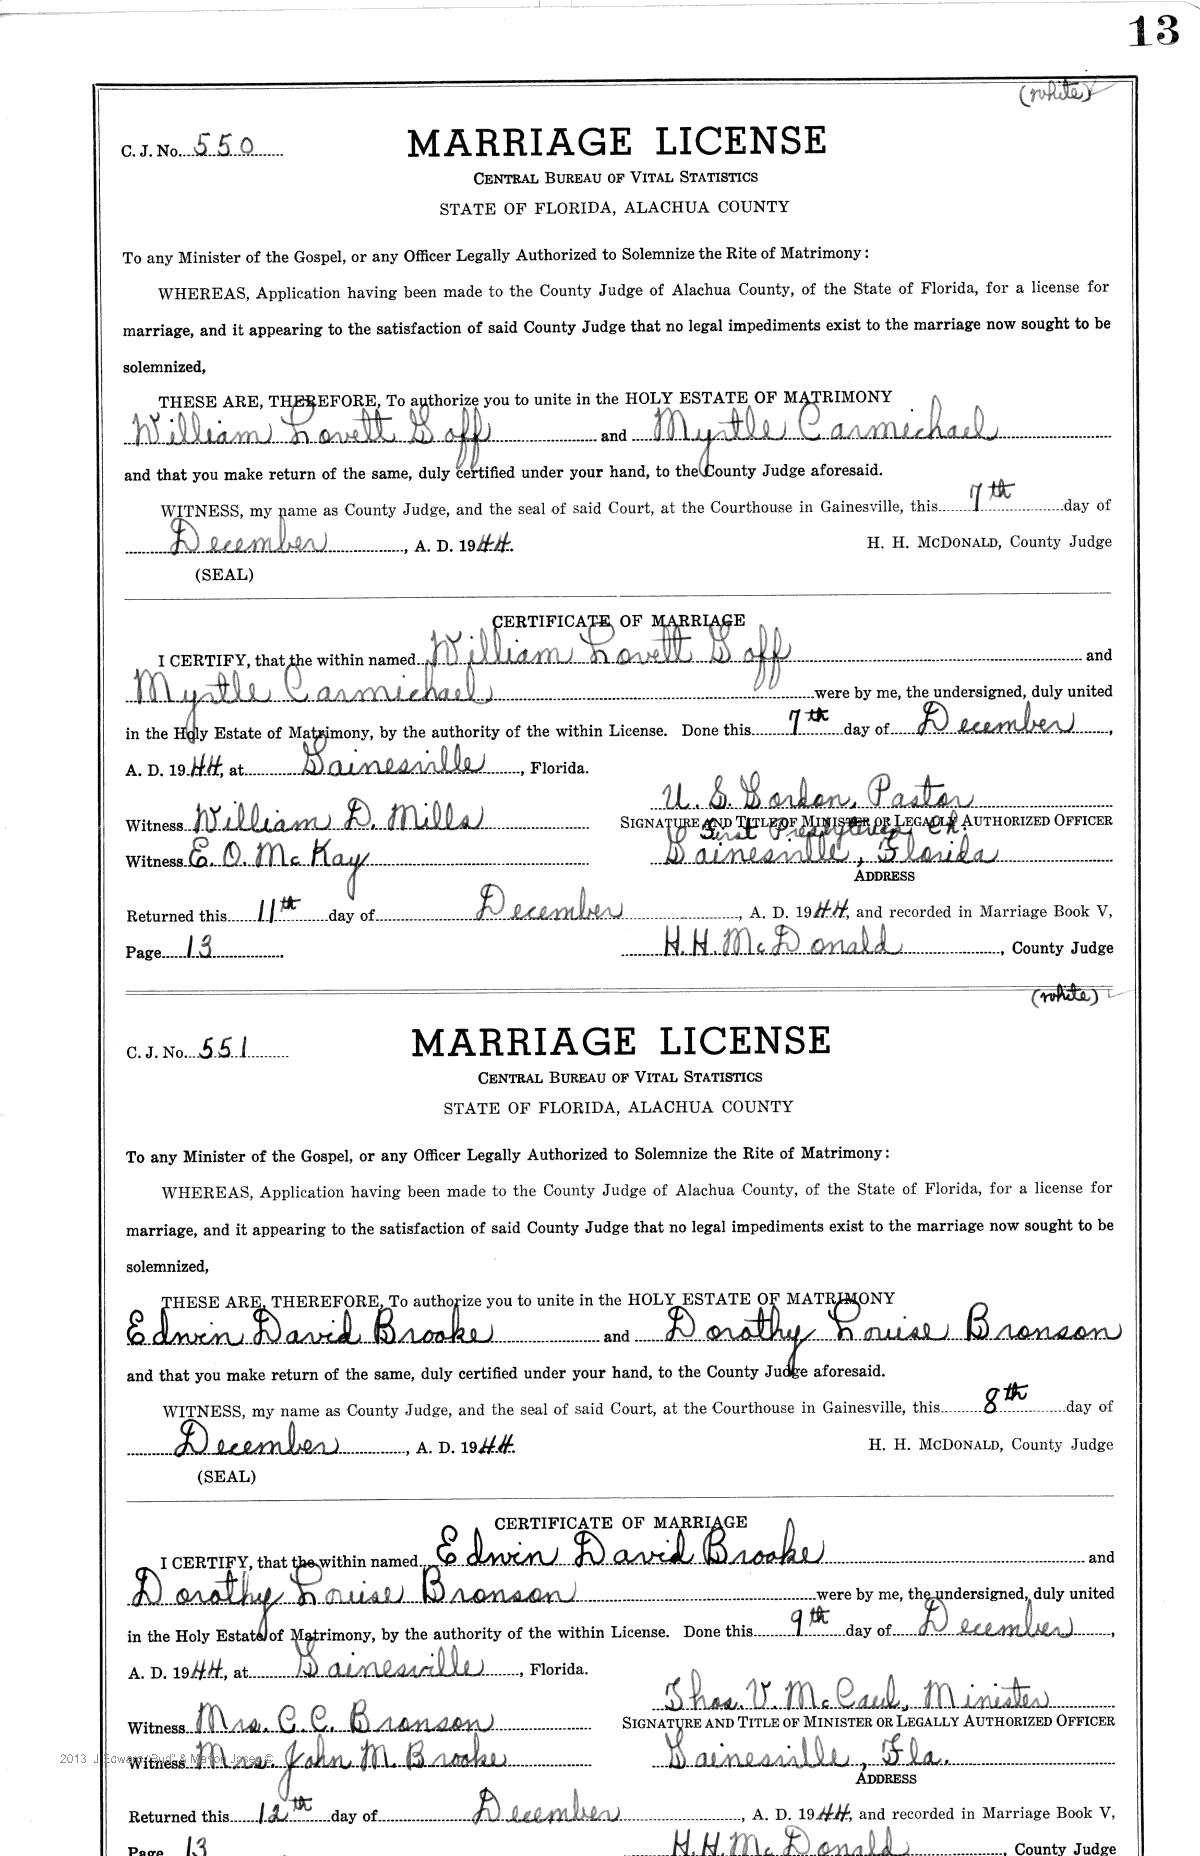 13
(white)
C. J. No. 550
MARRIAGE LICENSE
CENTRAL BUREAU OF VITAL STATISTICS
STATE OF FLORIDA, ALACHUA COUNTY
To any Minister of the Gospel, or any Officer Legally Authorized to Solemnize the Rite of Matrimony:
WHEREAS, Application having been made to the County Judge of Alachua County, of the State of Florida, for a license for
marriage, and it appearing to the satisfaction of said County Judge that no legal impediments exist to the marriage now sought to be
solemnized,
THESE ARE, THEREFORE, To authorize you to unite in the HOLY ESTATE OF MATRIMONY
William Lovett Goff and Myrtle Carmichael
and that you make return of the same, duly certified under your hand, to the County Judge aforesaid.
WITNESS, my name as County Judge, and the seal of said Court, at the Courthouse in Gainesville, this 7th day of
December, A. D. 1944. H. H. MCDONALD, County Judge
(SEAL)
CERTIFICATE OF MARRIAGE
I CERTIFY, that the within named William Lovett Goff and
Myrtle Carmichael were by me, the undersigned, duly united
in the Holy Estate of Matrimony, by the authority of the within License. Done this 7th day of December,
A. D. 1944, at Gainesville, Florida.
U. S. Gordon, Pastor
Witness William D. Mills SIGNATURE AND TITLE OF MINISTER OR LEGALLY AUTHORIZED OFFICER
First Presbyterian Ch.
Witness E. O. McKay Gainesville, Florida
ADDRESS
Returned this 11th day of December, A. D. 1944, and recorded in Marriage Book V,
Page 13 H. H. McDonald, County Judge
(white)
C. J. No. 551
MARRIAGE LICENSE
CENTRAL BUREAU OF VITAL STATISTICS
STATE OF FLORIDA, ALACHUA COUNTY
To any Minister of the Gospel, or any Officer Legally Authorized to Solemnize the Rite of Matrimony:
WHEREAS, Application having been made to the County Judge of Alachua County, of the State of Florida, for a license for
marriage, and it appearing to the satisfaction of said County Judge that no legal impediments exist to the marriage now sought to be
solemnized,
THESE ARE, THEREFORE, To authorize you to unite in the HOLY ESTATE OF MATRIMONY
Edwin David Brooke and Dorothy Louise Bronson
and that you make return of the same, duly certified under your hand, to the County Judge aforesaid.
WITNESS, my name as County Judge, and the seal of said Court, at the Courthouse in Gainesville, this 8th day of
December, A. D. 1944. H. H. MCDONALD, County Judge
(SEAL)
CERTIFICATE OF MARRIAGE
I CERTIFY, that the within named Edwin David Brooke and
Dorothy Louise Bronson were by me, the undersigned, duly united
in the Holy Estate of Matrimony, by the authority of the within License. Done this 9th day of December,
A. D. 1944, at Gainesville, Florida.
Thos. V. McCaul, Minister
Witness Mrs. C. C. Bronson SIGNATURE AND TITLE OF MINISTER OR LEGALLY AUTHORIZED OFFICER
2013 J Edward "Bud" & Marion
Witness Mrs. John M. Brooke Gainesville, Fla.
ADDRESS
Returned this 12th day of December, A. D. 1944, and recorded in Marriage Book V,
Page 13 H. H. McDonald, County Judge